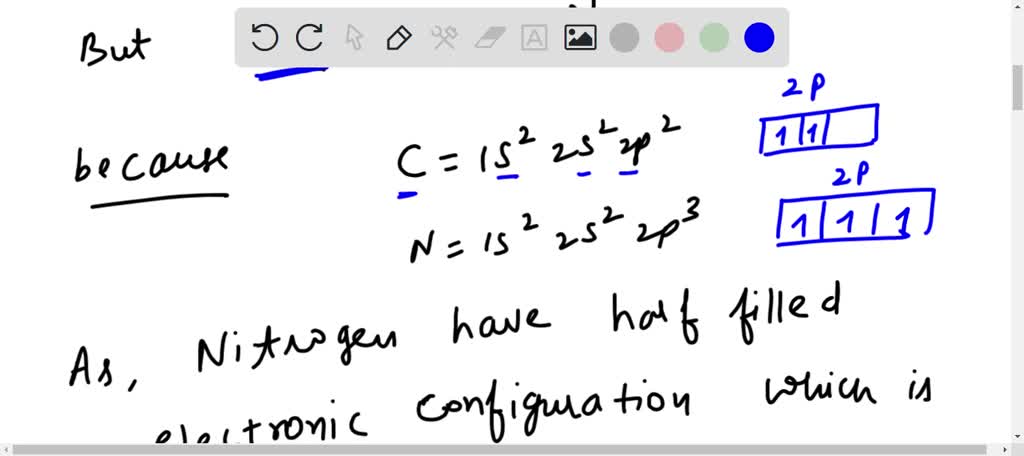 But
2p
because C = 1s² 2s² 2p² 1 1
2p
N = 1s² 2s² 2p³ 1 1 1
As, Nitrogen have half filled
electronic configuration which is